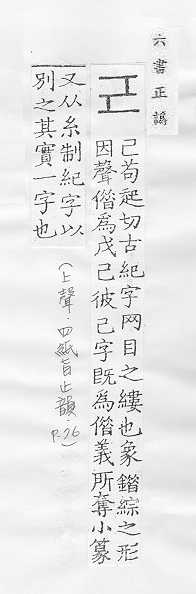 六書正譌
己
己苟起切古紀字网目之縷也象錯綜之形
因聲借為戊己彼己字既為借義所奪小篆
又从糸制紀字以
別之其實一字也
(上聲.四紙旨止韻.P.26)